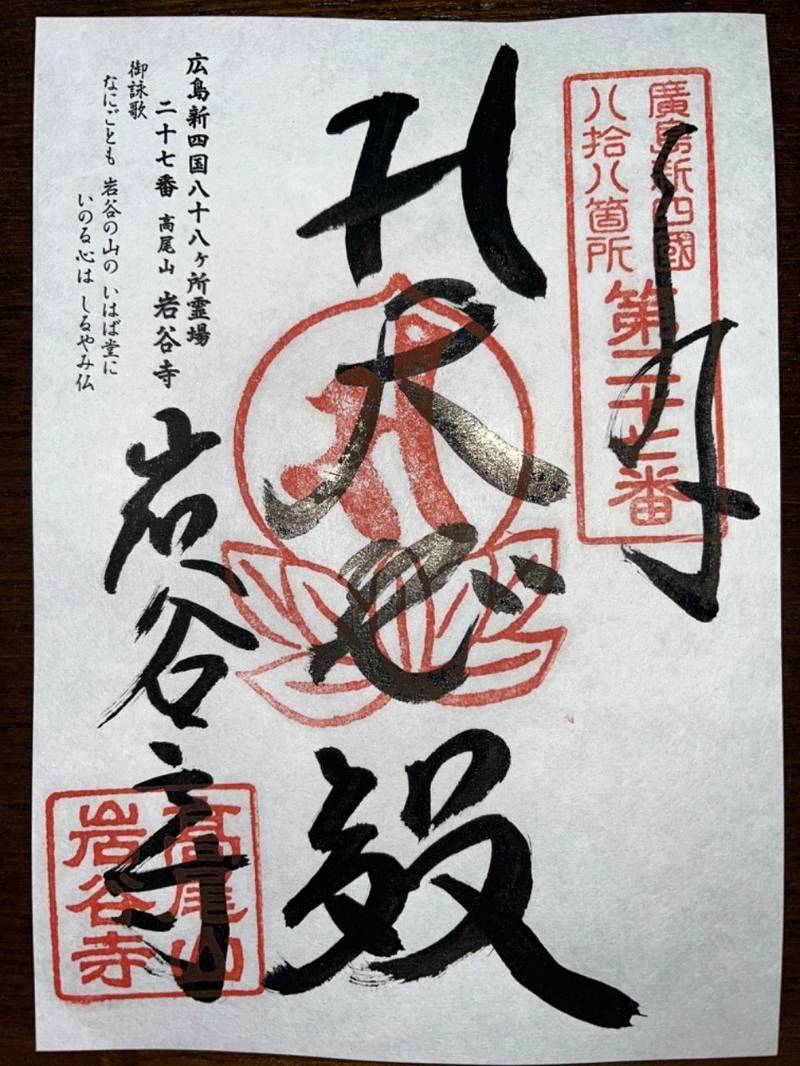 廣島新四國
八拾八箇所
第二十七番
殿
広島新四国八十八ヶ所霊場
二十七番 高尾山 岩谷寺
御詠歌
なにごとも 岩谷の山の いはば堂に
いのる心は しるやみ仏
岩谷寺
高尾山
岩谷寺